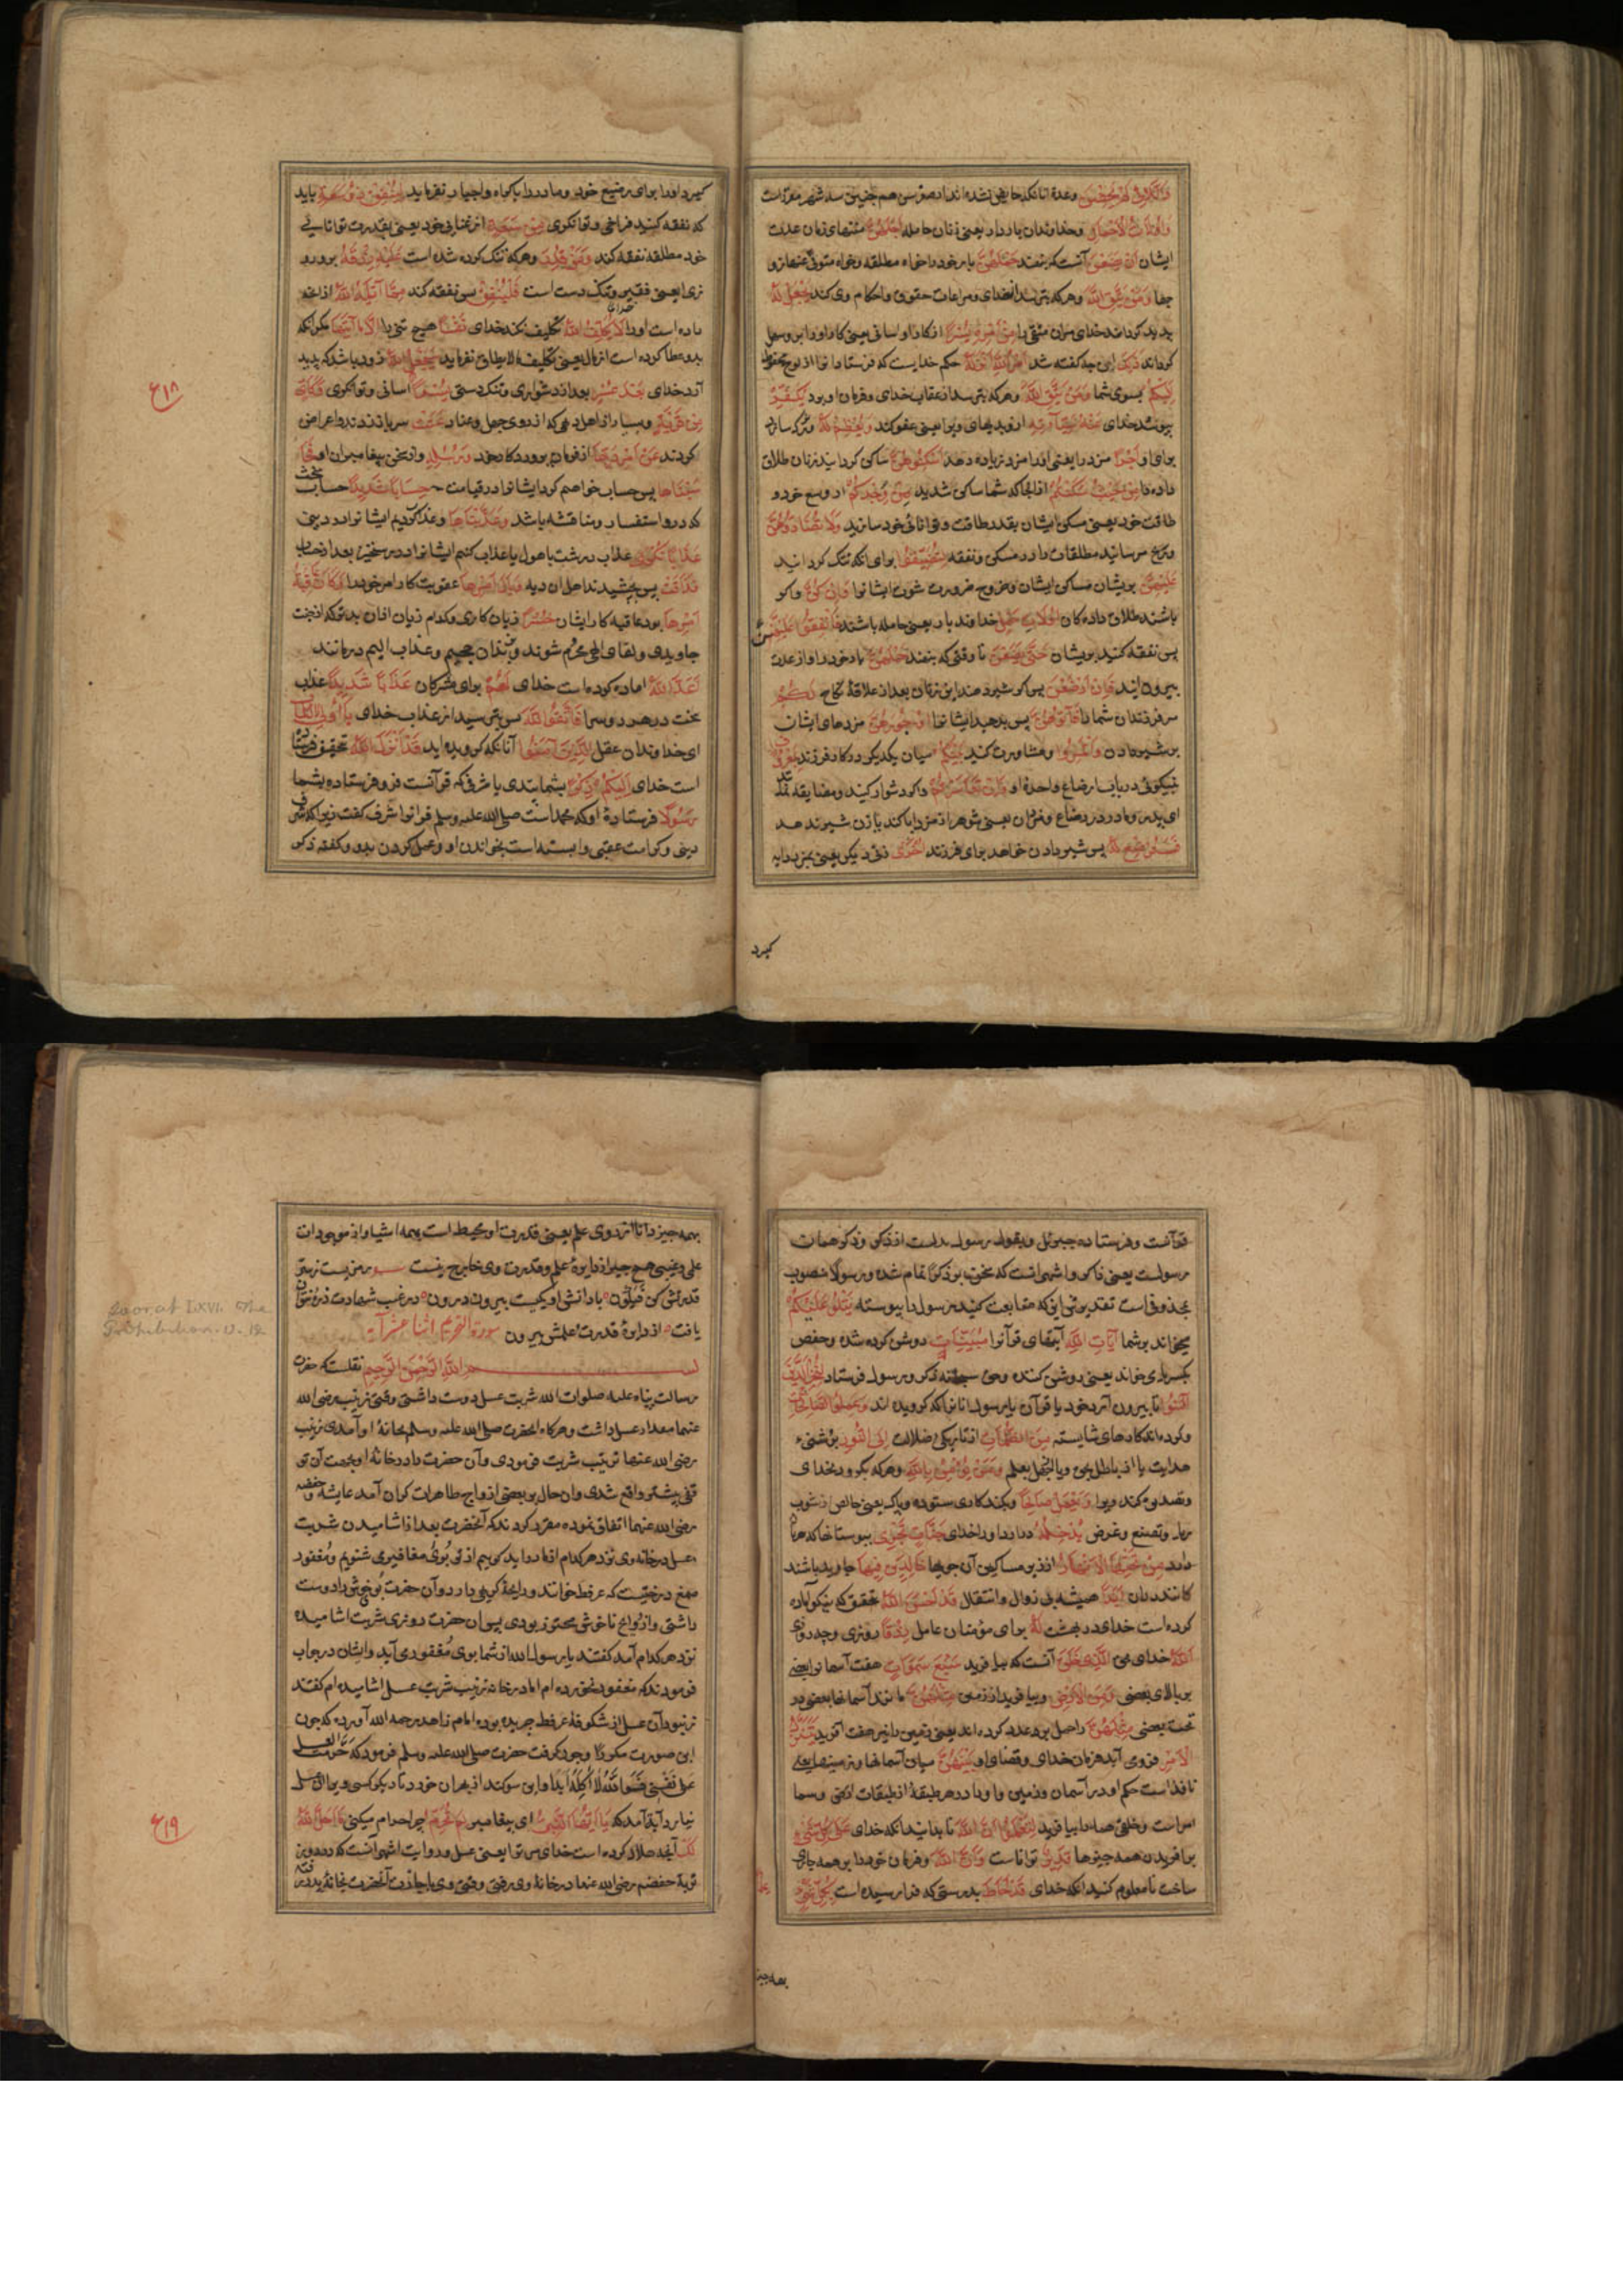 وَاللَّائِي لَمْ يَحِضْنَ وعدة آنانکه حایض نشده اند از صغر سن هم چنین سه شهر مقررست
وَأُولَاتُ الْأَحْمَالِ وخداوندان بار دار یعنی زنان حامله أَجَلُهُنَّ منتهای زمان عدت
ایشان أَنْ يَضَعْنَ آنست که بنهند حَمْلَهُنَّ بار خود را خواه مطلقه وخواه متوفی عنها زو
جها وَمَنْ يَتَّقِ اللَّهَ وهرکه بترسد از خدای ومراعات حقوق واحکام وی کند يَجْعَلْ لَهُ
پدید کرداند خدای مران متقی را مِنْ أَمْرِهِ يُسْرًا از کار او اسانی یعنی کار او را برو سهل
کرداند ذَلِكَ این چه کفته شد أَمْرُ اللَّهِ أَنْزَلَهُ حکم خدایست که فرستاد انرا از لوح محفوظ
إِلَيْكُمْ بسوی شما وَمَنْ يَتَّقِ اللَّهَ وهرکه بترسد از عقاب خدای وفرمان او برد يُكَفِّرْ
بپوشد خدای عَنْهُ سَيِّئَاتِهِ ازو بدیهای ویرا یعنی عفو کند وَيُعْظِمْ لَهُ وبزرک سازد
برای او أَجْرًا مزد را یعنی او را مزد زیاده دهد أَسْكِنُوهُنَّ ساکن کردانید زنان طلاق
داده را مِنْ حَيْثُ سَكَنْتُمْ از انجا که شما ساکن شدید مِنْ وُجْدِكُمْ از وسع خود و
طاقت خود یعنی مسکن ایشان بقدر طاقت وتوانائی خود سازید وَلَا تُضَارُّوهُنَّ
ورنج مرسانید مطلقات را در مسکن ونفقه لِتُضَيِّقُوا برای انکه تنک کردانید
عَلَيْهِنَّ بریشان مساکن ایشان وخروج ضرورت شود ایشانرا وَإِنْ كُنَّ واکر
باشند طلاق داده کان أُولَاتِ حَمْلٍ خداوند بار یعنی حامله باشند فَأَنْفِقُوا عَلَيْهِنَّ
پس نفقه کنید بریشان حَتَّى يَضَعْنَ تا وقتی که بنهند حَمْلَهُنَّ بار خود را واز عدت
بیرون ایند فَإِنْ أَرْضَعْنَ پس اکر شیر دهند این زنان بعد از علاقهٔ نکاح لَكُمْ
مر فرزندان شما را فَآتُوهُنَّ پس بدهید ایشانرا أُجُورَهُنَّ مزدهای ایشان
بر شیر دادن وَأْتَمِرُوا ومشاورت کنید بَيْنَكُمْ میان یکدیکر در کار فرزند بِمَعْرُوفٍ
بنیکوئی در باب ارضاع واجرهٔ او وَإِنْ تَعَاسَرْتُمْ واکر دشوار کنید ومضایقه نمائید
ای پدر ومادر در رضاع ومزد آن یعنی شوهر از مزد ابا کند یا زن شیر ندهد
فَسَتُرْضِعُ لَهُ پس شیر دادن خواهد برای فرزند أُخْرَى زنی دیکر یعنی بمزد دایه
کیرد
کیرد او را برای مرضیع خود ومادر را باکراه واجبار نفرماید لِيُنْفِقْ ذُو سَعَةٍ باید
که نفقه کنید فراخی وتوانکری مِنْ سَعَتِهِ از غنای خود یعنی بقدرت توانائی
خود مطلقه نفقه کند وَمَنْ قُدِرَ وهرکه تنک کرده شده است عَلَيْهِ رِزْقُهُ برو رو
زی یعنی فقیر وتنک دست است فَلْيُنْفِقْ پس نفقه کند مِمَّا آتَاهُ اللَّهُ از انچه
داده است او را لَا يُكَلِّفُ اللَّهُ تکلیف نکند خدای نَفْسًا هیچ تنی را إِلَّا مَا آتَاهَا مکر انکه
بدو عطا کرده است از مال یعنی تکلیف ما لا یطاق نفرماید سَيَجْعَلُ اللَّهُ زود باشد که پدید
آرد خدای بَعْدَ عُسْرٍ بعد از دشواری وتنک دستی يُسْرًا اسانی وتوانکری وَكَأَيِّنْ
مِنْ قَرْيَةٍ وبسیار از اهل دهی که از روی جهل وعناد عَتَتْ سر باز زدند واعراض
کردند عَنْ أَمْرِ رَبِّهَا از فرمان پروردکار خود وَرُسُلِهِ واز سخن پیغامبران او فَحَا
سَبْنَاهَا پس حساب خواهم کرد ایشانرا در قیامت حِسَابًا شَدِيدًا حساب سخت
که درو استفسار ومناقشه باشد وَعَذَّبْنَاهَا وعذاب کردیم ایشانرا در دینی
عَذَابًا نُكْرًا عذاب درشت با هول یا عذاب کنیم ایشانرا در رستخیز بعد از حساب
فَذَاقَتْ پس بچشیدند اهل ان دیه وَبَالَ أَمْرِهَا عقوبت کار امر خود را وَكَانَ عَاقِبَةُ
أَمْرِهَا بود عاقبه کار ایشان خُسْرًا زیان کاری وکدام زیان ازان بدتر که از جنت
جاویدی ولقای الهی محروم شوند وبزندان جحیم وعذاب الیم درمانند
أَعَدَّ اللَّهُ اماده کرده است خدای لَهُمْ برای مشرکان عَذَابًا شَدِيدًا عذاب
سخت در هر دو سرا فَاتَّقُوا اللَّهَ پس بترسید از عذاب خدای يَا أُولِي الْأَلْبَابِ
ای خداوندان عقل الَّذِينَ آمَنُوا آنانکه کرویده اید قَدْ أَنْزَلَ اللَّهُ تحقیق فرستاده
است خدای إِلَيْكُمْ ذِكْرًا بشما پندی یا شرفی که قرآنست وفرستاده بشما
رَسُولًا فرستادهٔ او که محمد است صلی الله علیه وسلم قرانرا شرف کفت زیرا که شرف
دینی وکرامت عقبی وابسته است بخواندن او وعمل کردن بدو وکفته ذکر
ع۱۸
قرآنست وفرستاده جبرئیل ویقول رسول بدلست از ذکر وذکر همان
رسولست یعنی ذاکر واشهر انست که سخن بر ذکرًا تمام شده ورسولًا منصوب
بمحذوف است تقدیرش اینکه متابعت کنید رسول را پیوسته يَتْلُو عَلَيْكُمْ
میخواند برشما آيَاتِ اللَّهِ آیتهای قرآنرا مُبَيِّنَاتٍ روشن کرده شده وحفص
بکسر یا می خواند یعنی روشن کننده وحق سبحانه ذکر ورسول فرستاد لِيُخْرِجَ الَّذِينَ
آمَنُوا تا بیرون آرد خود یا قرآن یا رسول انانرا که کرویده اند وَعَمِلُوا الصَّالِحَاتِ
وکرده اند کارهای شایسته مِنَ الظُّلُمَاتِ از تاریکی ضلالت إِلَى النُّورِ بروشنی
هدایت یا از باطل بحق ویا از جهل بعلم وَمَنْ يُؤْمِنْ بِاللَّهِ وهرکه بکرود بخدای
وتصدیق کند ویرا وَيَعْمَلْ صَالِحًا وبکند کاری ستوده وپاک یعنی خالص از شوب
ریا وتصنع وغرض يُدْخِلْهُ دراردا ورا خدای جَنَّاتٍ تَجْرِي ببوستانها که میرود
مِنْ تَحْتِهَا الْأَنْهَارُ از زیر مساکن آن جویها خَالِدِينَ فِيهَا جاوید باشند
کانند دران أَبَدًا همیشه بی زوال وانتقال قَدْ أَحْسَنَ اللَّهُ بتحقیق که نیکو آماده
کرده است خدای در بهشت لَهُ برای مؤمنان عامل رِزْقًا روزی وچه روزی
اللَّهُ خدای بحق الَّذِي خَلَقَ آنست که بیافرید سَبْعَ سَمَاوَاتٍ هفت آسمانرا بعضی
بربالای بعضی وَمِنَ الْأَرْضِ وبیافرید از زمین مِثْلَهُنَّ مانند آسمانها بعضی در
تحت بعضی مِثْلَهُنَّ را حمل برعدد کرده اند یعنی زمین را نیز هفت آفرید يَتَنَزَّلُ
الْأَمْرُ فرومی آید فرمان خدای وقضای او بَيْنَهُنَّ میان آسمانها وزمینها یعنی
نافذ است حکم او در آسمان وزمین واو را در هر طبقهٔ از طبقات ارضی وسما
امر است وخلق همه را بیافرید لِتَعْلَمُوا أَنَّ اللَّهَ تا بدانید انکه خدای عَلَى كُلِّ شَيْءٍ
بر افریدن همه چیزها قَدِيرٌ تواناست وَأَنَّ اللَّهَ وفرمان خود را بر همه جاری
ساخت تا معلوم کنید انکه خدای قَدْ أَحَاطَ بدرستی که فرا رسیده است بِكُلِّ شَيْءٍ
بهمه چیز
بهمه چیز دانا از روی علم یعنی قدرت او محیط است بهمه اشیا واز موجودات
علمی وغیبی هیچ چیز از دایرهٔ علم وقدرت وی خارج نیست
یافت از دایرهٔ قدرت علمش بیرون سورة التحریم اثنا عشر آیه
بسم الله الرَّحْمَنِ الرَّحِيمِ نقلست که حضرت
رسالت پناه علیه صلوات الله شربت عسل دوست داشتی وقتی زینب رضی الله
عنها مقدار عسل داشت وهرکاه انحضرت صلی الله علیه وسلم بخانهٔ او آمدی زینب
رضی الله عنها ترتیب شربت فرمودی وآن حضرت را در خانهٔ او بجهت آن تو
قفی بیشتر واقع شدی وان حال بر بعضی ازواج طاهرات کران آمد عایشه وحفصه
رضی الله عنهما اتفاق نموده مقرر کردند که آنحضرت بعد از اشامیدن شربت
عسل درخانهٔ وی نزد هرکدام ازما درآید کوییم از تو بوی مغافیر می شنویم ومغفور
صمغ درختیست که عرفط خوانند ورایحهٔ کریه دارد وآن حضرت بوی خوش را دوست
داشتی واز روایح ناخوش محترز بودی پس ان حضرت روزی شربت اشامیده
نزد هرکدام آمد کفتند یا رسول الله از شما بوی مغفور می آید وایشان درجواب
فرمودند که مغفور نخورده ام اما در خانه زینب شربت عسل اشامیده ام کفتند
زنبوران عسل از شکوفهٔ عرفط چریده بوده امام زاهد رحمه الله آورده که چون
این صورت مکررًا وجود کرفت حضرت صلی الله علیه وسلم فرمود که حَرَّمْتُ العسل
عَلَى نَفْسِي فَوَاللَّهِ لَا آكُلُهُ أَبَدًا واین سوکند ازبهران خورد تا دیکر کسی ویرا عسل
نیارد آیة آمد که يَا أَيُّهَا النَّبِيُّ ای پیغامبر لِمَ تُحَرِّمُ چرا حرام میکنی مَا أَحَلَّ اللَّهُ
لَكَ آنچه حلال کرده است خدای مر ترا یعنی عسل وروایت اشهر آنست که در روز
نوبهٔ حفصه رضی الله عنها درخانهٔ وی رفتی وقتی وی باجازت آنحضرت بخانهٔ پدر رفته
ع۱۹
Soorat LXVI. The
Prohibition. v. 12